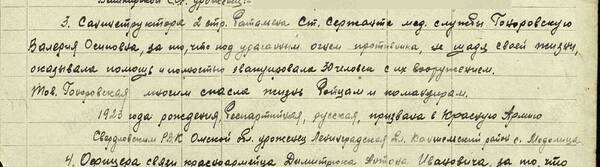 3. Санинструктора 2 стр. Батальона Ст. Сержанта мед. службы Гноровскую
Валерию Осиповну, за то, что под ураганным огнем противника, не щадя своей жизни,
оказывала помощь и полностью эвакуировала 30 человек с их вооружением.
Тов. Гноровская многим спасла жизнь бойцам и командирам.
1923 года рождения, беспартийная, русская, призвана в Красную Армию
Свердловским РВК Омской обл. урожениц Ленинградская обл. район с.
4. Офицера связи красноармейца Димитрюка Антона Ивановича, за то, что